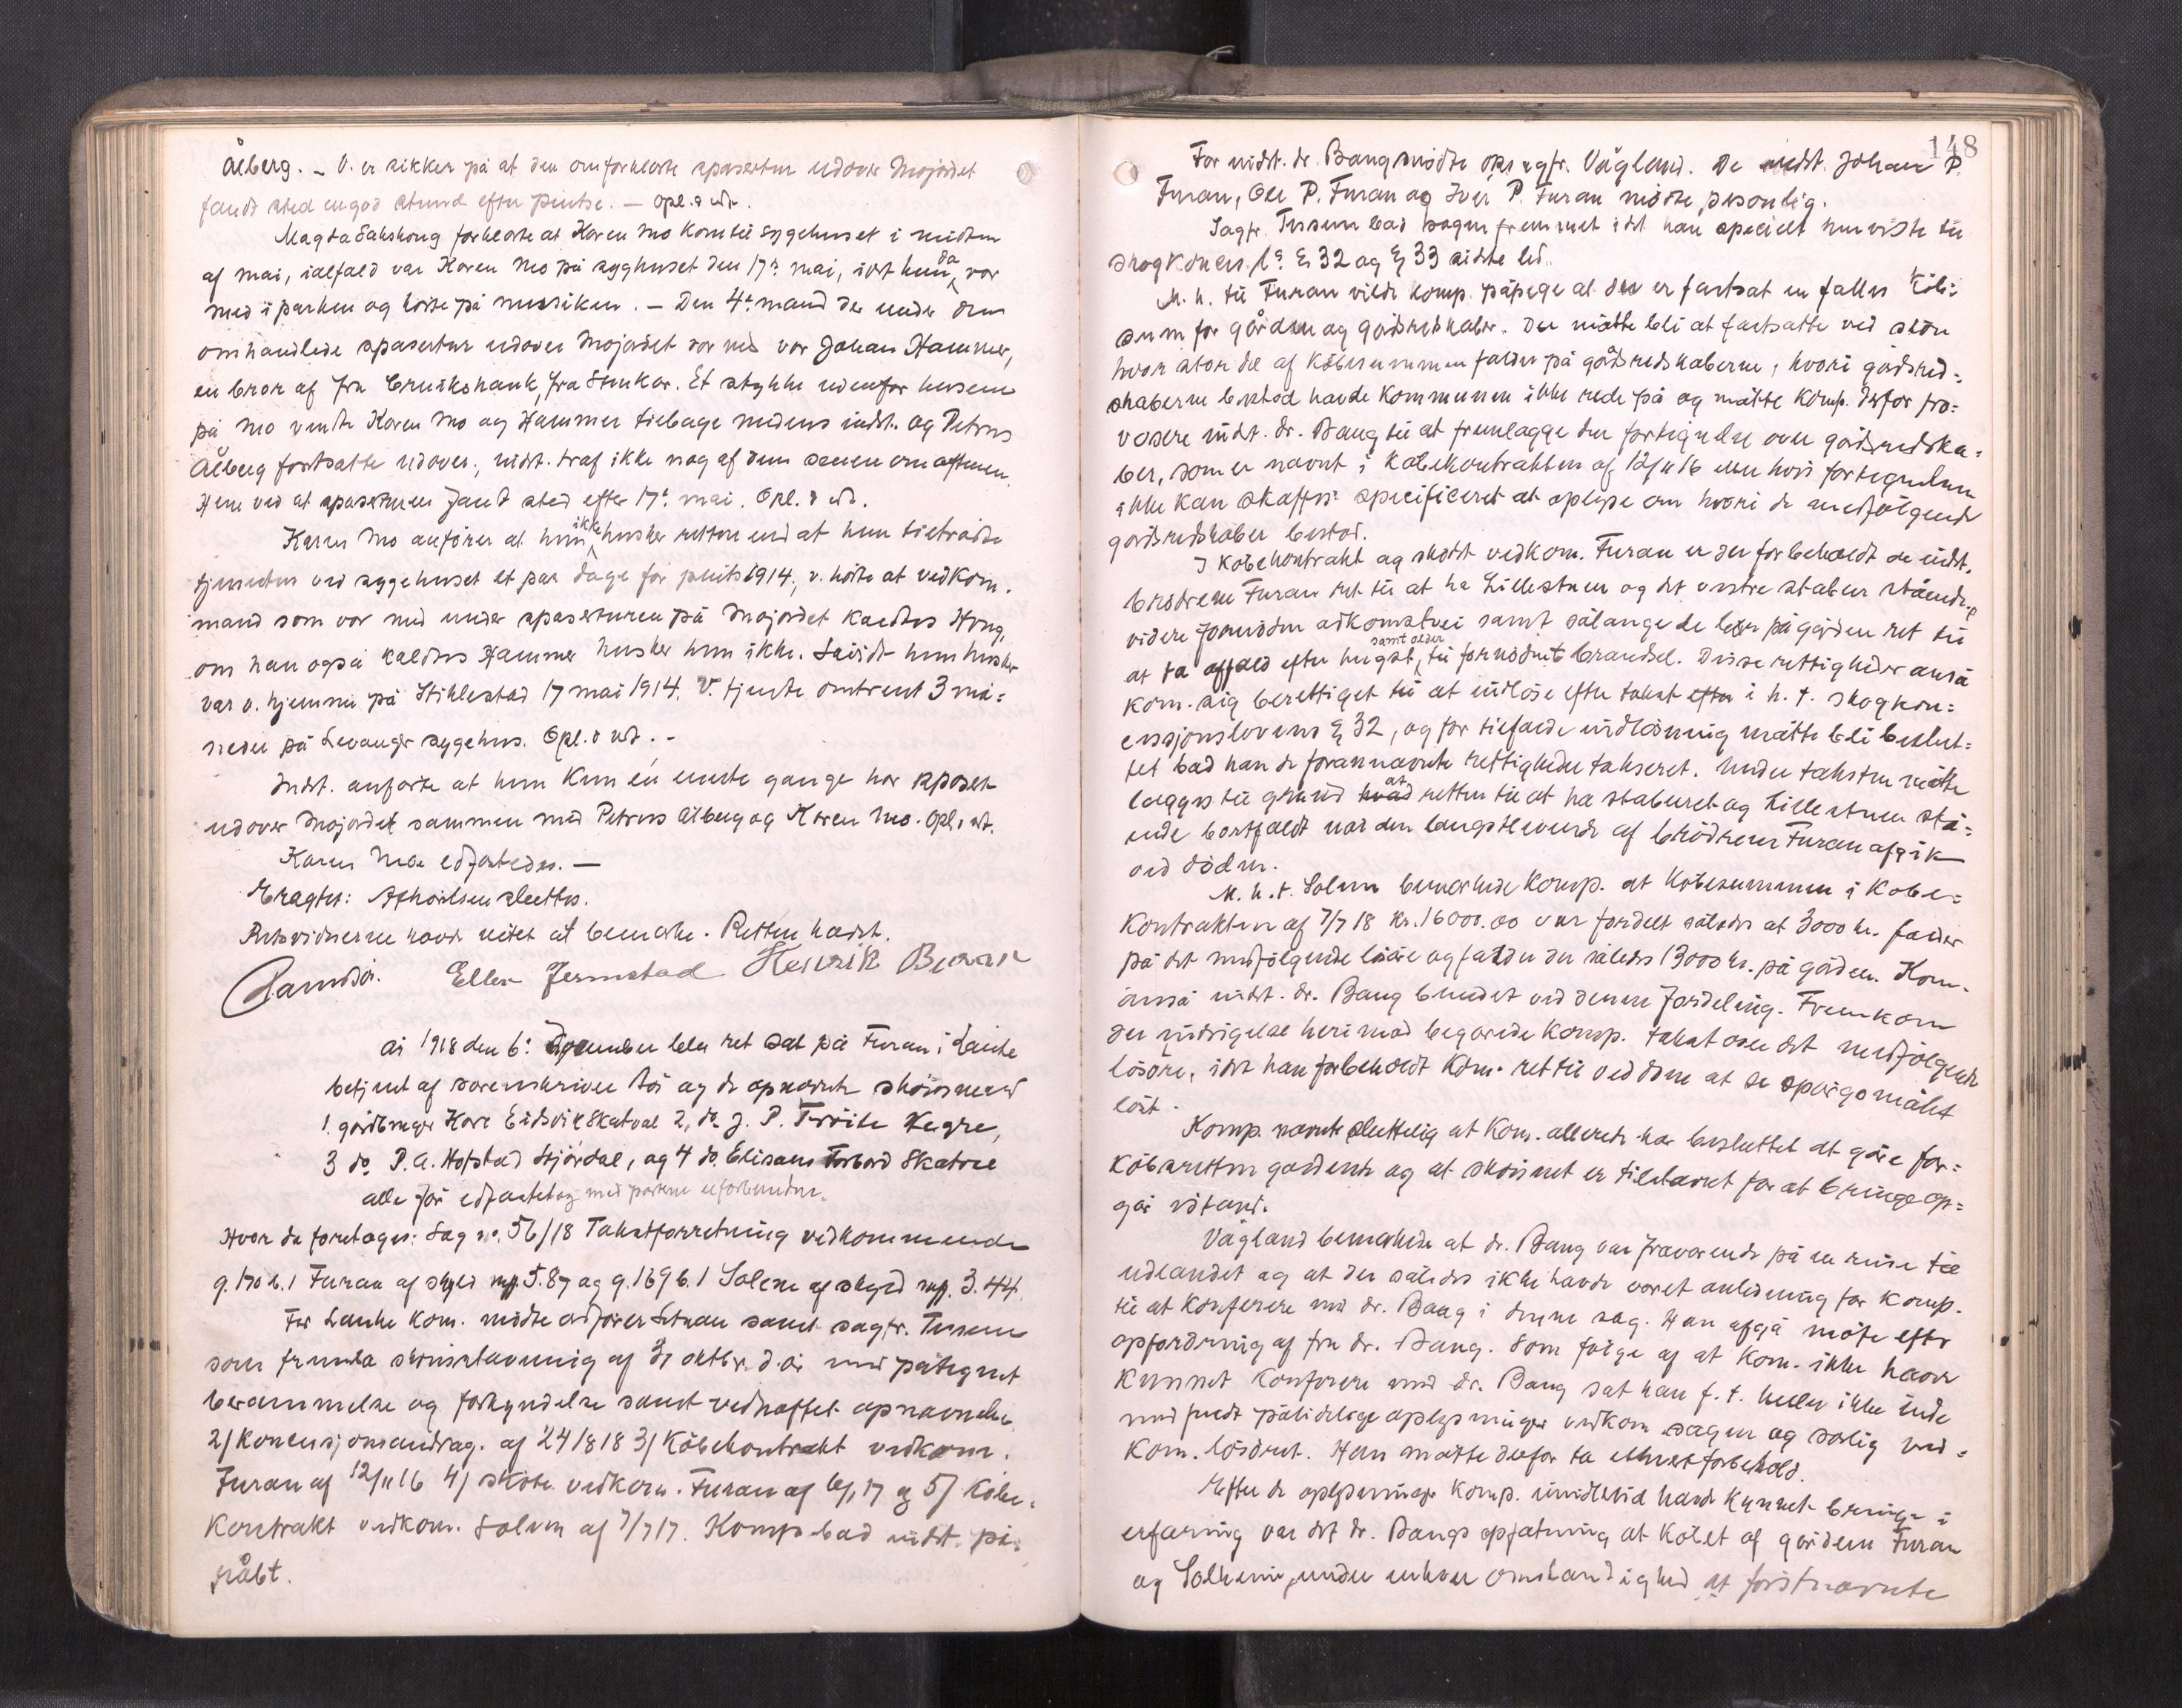 Ålberg. – V. er sikker på at den omforklarte spasertur udover Mojordet
fandt sted en god stund efter pintse. — Opl. & vedt.
Magda Sakshoug forklarte at Karen Mo kom til sygehuset i midten
af mai, ialfald var Karen Mo på syghuset den 17de mai, idet hun da var
med i parken og hørte på musiken. – Den 4de mand der under den
omhandlede spasertur udover Mojordet var med var Johan Hammer,
en bror af fru Cruikshank, fra Stenkær. Et stykke udenfor husene
på Mo vendte Karen Mo og Hammer tilbage medens indst. og Petrus
Ålberg fortsatte udover, indst. traf ikke nog af dem senere om aftenen.
Hun ved at spaserturen fandt sted efter 17de mai. Opl. & vedt.
Karen Mo anfører at hun ikke husker rettere end at hun tiltrådte
tjenesten ved sygehuset et par dage før pints 1914, v. hørte at vedkom.
mand som var med under spaserturen på Mojordet kaldtes Haug,
om han også kaldtes Hammer husker hun ikke. Såvidt hun husker
var v. hjemme på Stiklestad 17 mai 1914. V. tjente omtrent 3 må=
neder på Levanger sygehus. Opl. & vedt. –
Indst. anførte at hun kun én eneste gange har spaset
udover Mojordet sammen med Petrus Ålberg og Karen Mo. Opl. & vedt.
Karen Moe edfæstedes. —
Eragtes: Afhørelsen sluttes.
Retsvidnerne havde intet at bemærke. Retten hævet.
Ellen Jermstad Henrik
År 1918 den 6te november blev ret sat på Furan i Lånke
betjent af sorenskriver og de opnævnte skjønsmænd
1. gårdbruger Hare Eidsvik Skatval 2, do J. P. Trøite Hegre,
3 do P. A. Hofstad Stjørdal, og 4 do. Elisæus Forbord Skatval
alle før edfæstet og med parterne uforbundne.
Hvor da foretoges: Sag no. 56/18 Takstforretning vedkommende
g. 170 b. 1 Furan af skyld mp. 5.87 og g. 169 b. 1 Solem af skyld mp. 3.44.
For Lånke kom. mødte ordfører samt sagfr. Tessem
som fremla skjønsstævning af 31 oktbr. d. år med påtegnet
berammelse og forkyndelse samt vedhæftet opnævnelse
2/ Koncesjonsandrag. af 24/8 18 3/ Købekontrakt vedkom.
Furan af 12/11 16 4/ skøte vedkom. Furan af 17 og 5/ Købe=
kontrakt vedkom. Solem af 7/7 17. Komp. bad indst. på=
råbt.
148
For indst. dr. Bang mødte sagfr. Vågland. De indst. Johan P.
Furan, Ole P. Furan og Iver P. Furan mødte personlig.
Sagfr. Tessem bad sagen fremmet idet han specielt henviste til
skogkonces. l. § 32 og § 33 sidste led.
M. h. til Furan vilde komp. påpege at der er fastsat en fælles købe=
sum for gården og gårdsredskaber. Der måtte bli at fastsætte ved skøn
hvor stor del af købesummen falder på gårdsredskaberne, hvori gårdsred=
skaberne bestod havde kommunen ikke rede på og måtte komp. derfor pro=
vosere indst. dr. Bang til at fremlægge den fortegnelse over gårdsredska=
ber, som er nævnt i købekontrakten af 12/11 16 eller hvis fortegnelsen
ikke kan skaffes specificeret at oplyse om hvori de medfølgende
gårdsredskaber bestod.
I købekontrakt og skøte vedkom. Furan er der forbeholdt de indst.
brødrene Furan ret til at ha Lillestuen og det vestre stabur stående,
videre fornøden adkomstvei samt sålænge de lever på gården ret til
at ta affald efter hugst, samt older til fornødent brændsel. Disse rettigheder anså
kom. sig berettiget til at indløse efter takst i h. t. skogkon=
cessjonslovens § 32, og for tilfælde indløsning måtte bli beslut=
tet bad han de forannævnte rettigheder takseret. Under taksten måtte
lægges til grund at retten til at ha staburet og Lillestuen stå=
ende bortfaldt når den længstlevende af brødrene Furan afgik
ved døden.
M. h. t. Solem bemærkede komp. at købesummen i købe=
kontrakten af 7/7 18 kr. 16000.00 var fordelt således at 3000 kr. falder
på det medfølgende løsøre og falder der således 13000 kr. på gården. Kom.
anså indst. dr. Bang bundet ved denne fordeling. Fremkom
der indsigelse herimod begærede komp. takst over det medfølgende
løsøre, idet han forbeholdt kom. ret til ved dom at se spørgsmålet
løst.
Komp. nævnte sluttelig at kom. allerede har besluttet at gøre for=
købsretten gældende og at skjønnet er tilstævnet for at bringe op=
gør istand.
Vågland bemærkede at dr. Bang var fraværende på en reise til
udlandet og at der således ikke havde været anledning for komp.
til at konferere med dr. Bang i denne sag. Han afgå møte efter
opfordring af fru dr. Bang. Som følge af at kom. ikke havde
kunnet konferere med dr. Bang sat han f. t. heller ikke inde
med fuldt pålidelige oplysninger vedkom. sagen og særlig ved=
kom. løsøret. Han måtte derfor ta ethvert forbehold.
Efter de oplysninger komp. imidlertid havde kunnet bringe i
erfaring var det dr. Bangs opfatning at købet af gårdene Furan
og Solhem, under enhver omstændighed at førstnævnte